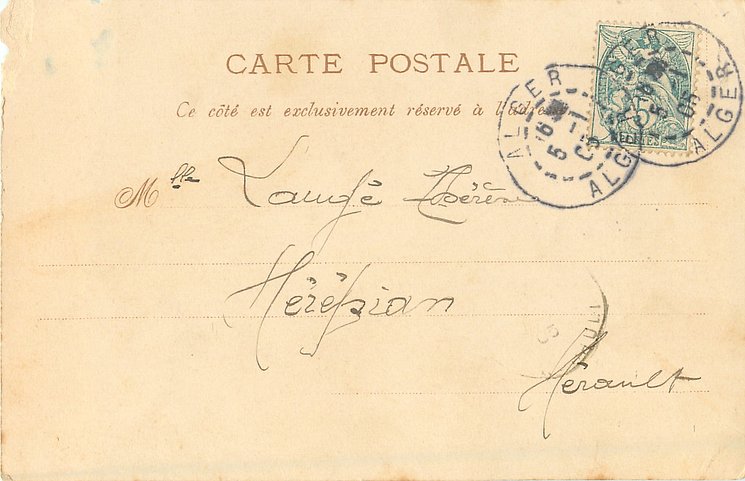 CARTE POSTALE
Ce côté est exclusivement réservé à l'adresse
ALGER ALGER
ALGER ALGER
Mlle Thérèse
Hérépian
Hérault